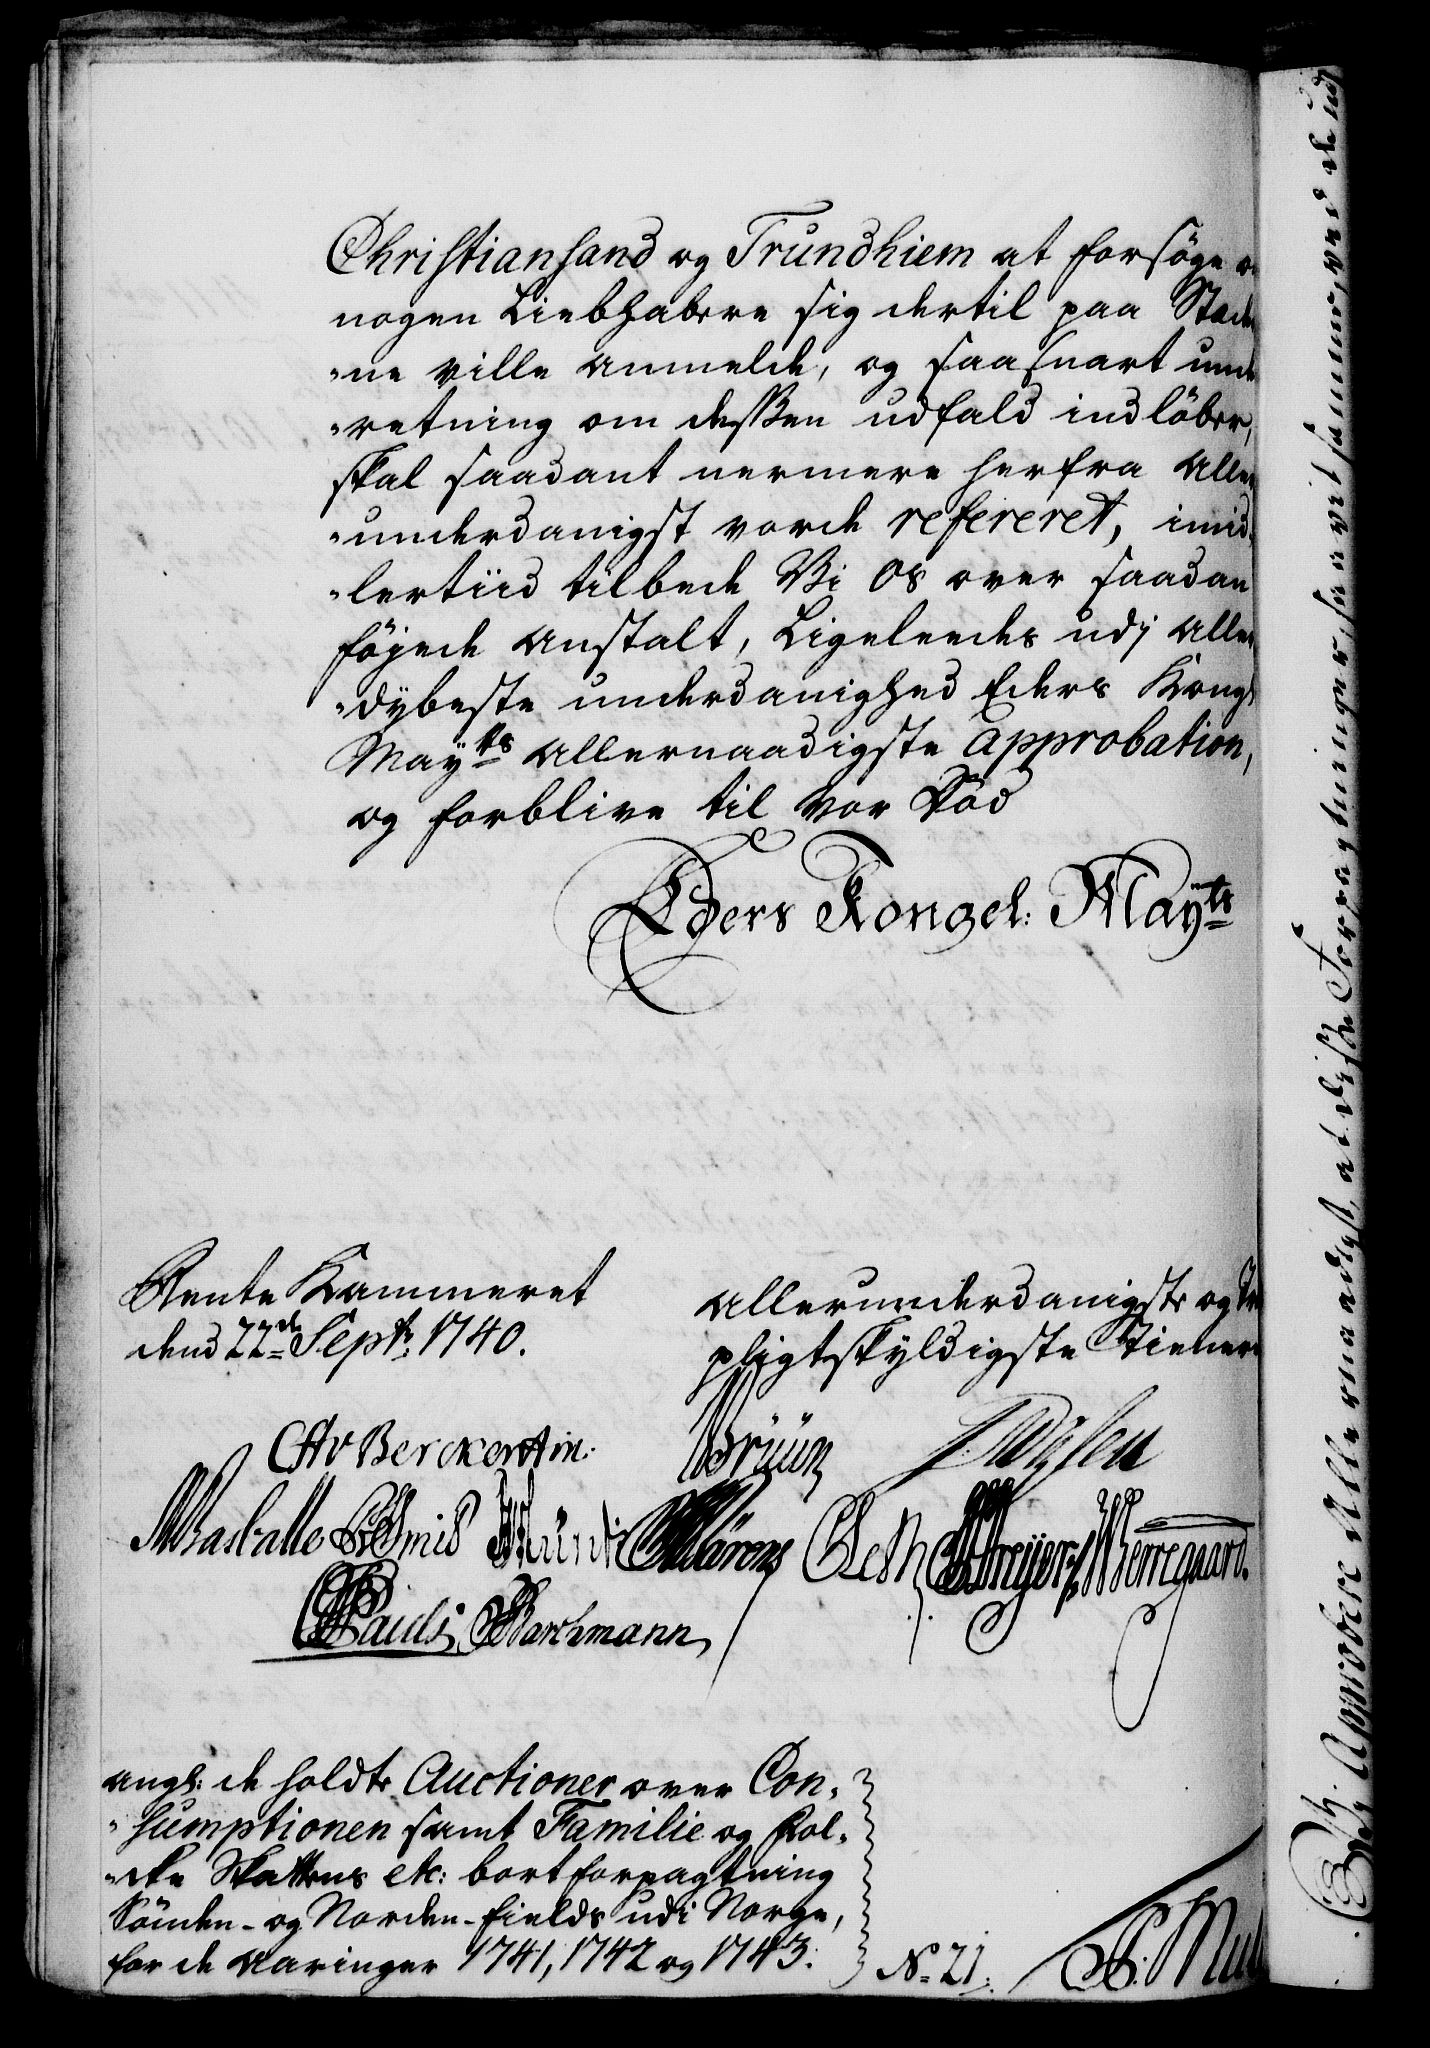 Christiansand og Trundhiem at forsøge o
nogen Liebhabere sig dertil paa Stæde
-ne ville anmelde, og saasnart unde
-retning om dessen udfald indlöber,
skal saadant nermere herfra aller
-underdanigst vorde refereret, imid
-lertiid tilbede Vi os over saadan
föjede anstalt, Ligeleedes udj aller
-dybeste underdanighed Eders Kongl
Mayts allernaadigste approbation,
og forblive til vor Död
Eders Kongel: Mayts
Rente Kammeret
dend 22de Septr: 1740.
allerunderdanigste og
pligtskyldigste Tienere
CAvBerckentin.
Brüün
Barchmann
angl: de holdte Auctioner over Con-
-sumptionen samt Familie og Fol-
-cke Skattens etc: bortforpagtning
Sönden- og Norden-fields udi Norge,
for de aaringer 1741, 1742 og 1743.
No 21.
Approbere Allernaadigst, at disse Forpagtninger, saavit samme, ved de udj